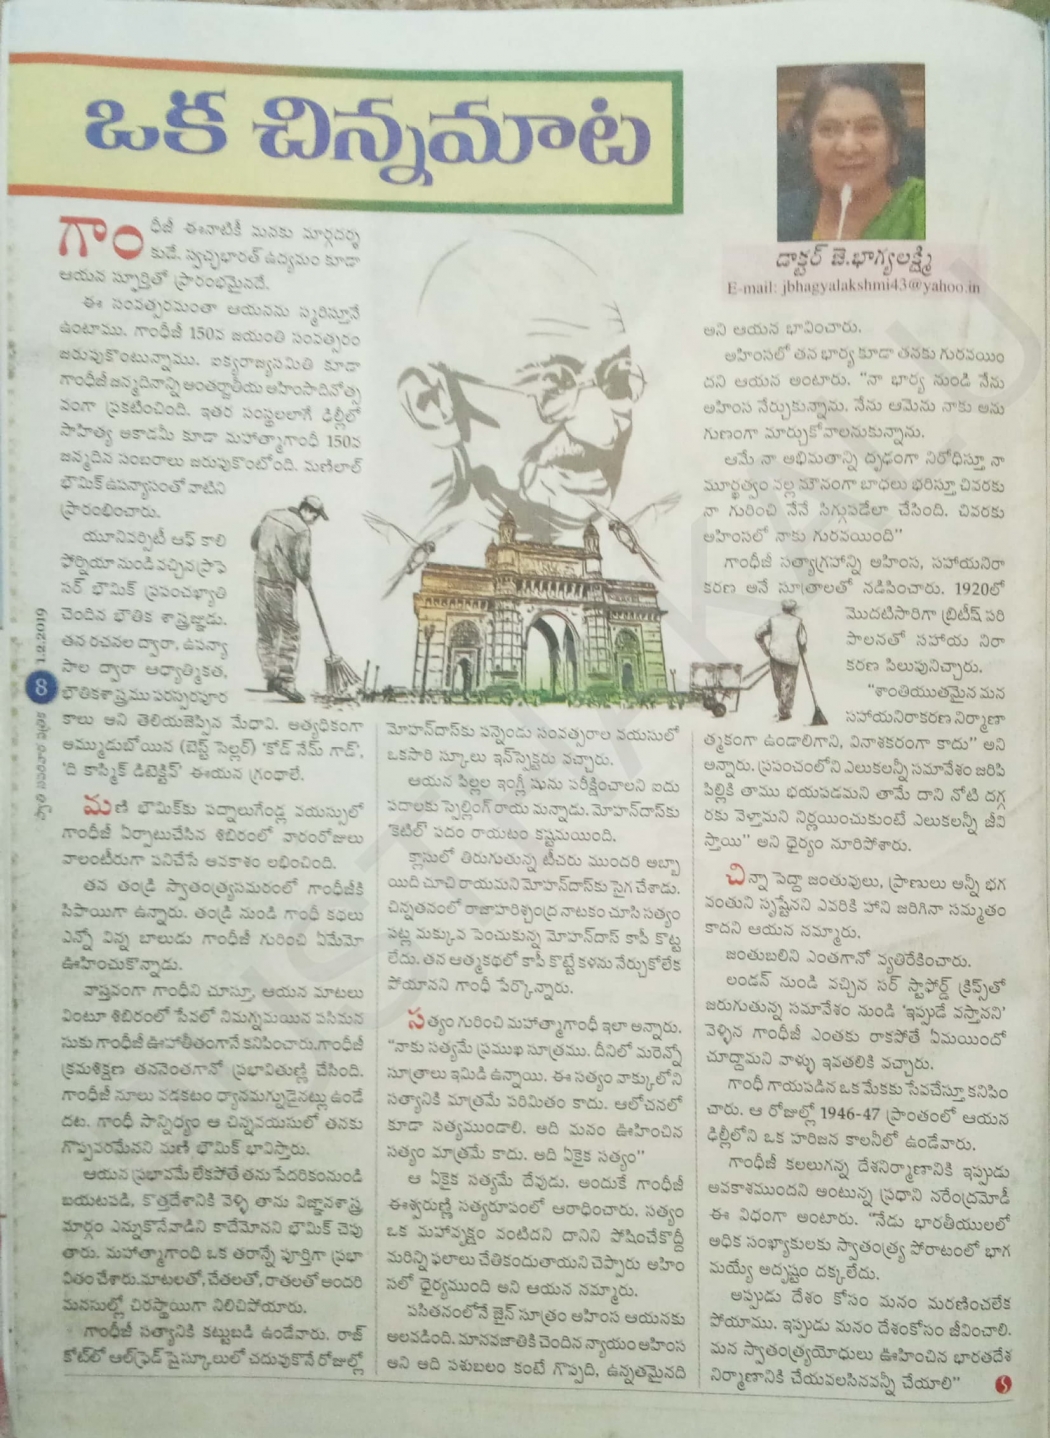 ఒక చిన్నమాట
డాక్టర్ జె.భాగ్యలక్ష్మి
E-mail: jbhagyalakshmi43@yahoo.in
గాంధీజీ ఈనాటికీ మనకు మార్గదర్శ
కుడే. స్వచ్ఛభారత్ ఉద్యమం కూడా
ఆయన స్ఫూర్తితో ప్రారంభమైనదే.
ఈ సంవత్సరమంతా ఆయనను స్మరిస్తూనే
ఉంటాము. గాంధీజీ 150వ జయంతి సంవత్సరం
జరుపుకొంటున్నాము. ఐక్యరాజ్యసమితి కూడా
గాంధీజీ జన్మదినాన్ని అంతర్జాతీయ అహింసాదినోత్స
వంగా ప్రకటించింది. ఇతర సంస్థలలాగే ఢిల్లీలో
సాహిత్య అకాడమీ కూడా మహాత్మాగాంధీ 150వ
జన్మదిన సంబరాలు జరుపుకొంటోంది. మణిలాల్
భౌమిక్ ఉపన్యాసంతో వాటిని
ప్రారంభించారు.
యూనివర్సిటీ ఆఫ్ కాలి
ఫోర్నియా నుండి వచ్చిన ప్రొఫె
సర్ భౌమిక్ ప్రపంచఖ్యాతి
చెందిన భౌతిక శాస్త్రజ్ఞుడు.
తన రచనల ద్వారా, ఉపన్యా
సాల ద్వారా ఆధ్యాత్మికత,
భౌతికశాస్త్రము పరస్పరపూర
కాలు అని తెలియజెప్పిన మేధావి. అత్యధికంగా
అమ్ముడుబోయిన (బెస్ట్ సెల్లర్) 'కోడ్ నేమ్ గాడ్',
'ది కాస్మిక్ డిటెక్టివ్' ఈయన గ్రంథాలే.
మణి భౌమిక్‌కు పద్నాలుగేండ్ల వయస్సులో
గాంధీజీ ఏర్పాటుచేసిన శిబిరంలో వారంరోజులు
వాలంటీరుగా పనిచేసే అవకాశం లభించింది.
తన తండ్రి స్వాతంత్ర్యసమరంలో గాంధీజీకి
సిపాయిగా ఉన్నారు. తండ్రి నుండి గాంధీ కథలు
ఎన్నో విన్న బాలుడు గాంధీజీ గురించి ఏమేమో
ఊహించుకొన్నాడు.
వాస్తవంగా గాంధీని చూస్తూ, ఆయన మాటలు
వింటూ శిబిరంలో సేవలో నిమగ్నమయిన పసిమన
సుకు గాంధీజీ ఊహాతీతంగానే కనిపించారు.గాంధీజీ
క్రమశిక్షణ తనవెంతగానో ప్రభావితుణ్ణి చేసింది.
గాంధీజీ నూలు వడకటం ధ్యానమగ్నుడైనట్లు ఉండే
దట. గాంధీ సాన్నిధ్యం ఆ చిన్నవయసులో తనకు
గొప్పవరమేనని మణి భౌమిక్ భావిస్తారు.
ఆయన ప్రభావమే లేకపోతే తను పేదరికంనుండి
బయటపడి, కొత్తదేశానికి వెళ్ళి తాను విజ్ఞానశాస్త్ర
మార్గం ఎన్నుకొనేవాడిని కాదేమోనని భౌమిక్ చెపు
తారు. మహాత్మాగాంధి ఒక తరాన్నే పూర్తిగా ప్రభా
వితం చేశారు.మాటలతో, చేతలతో, రాతలతో అందరి
మనసుల్లో చిరస్థాయిగా నిలిచిపోయారు.
గాంధీజీ సత్యానికి కట్టుబడి ఉండేవారు. రాజ్
కోట్‌లో ఆల్‌ఫ్రెడ్ హైస్కూలులో చదువుకొనే రోజుల్లో
మోహన్‌దాస్‌కు పన్నెండు సంవత్సరాల వయసులో
ఒకసారి స్కూలు ఇన్‌స్పెక్టరు వచ్చారు.
ఆయన పిల్లల ఇంగ్లీషును పరీక్షించాలని ఐదు
పదాలకు స్పెల్లింగ్ రాయ మన్నాడు. మోహన్‌దాస్‌కు
'కెటిల్' పదం రాయటం కష్టమయింది.
క్లాసులో తిరుగుతున్న టీచరు ముందరి అబ్బా
యిది చూచి రాయమని మోహన్‌దాస్‌కు సైగ చేశాడు.
చిన్నతనంలో రాజాహరిశ్చంద్ర నాటకం చూసి సత్యం
పట్ల మక్కువ పెంచుకున్న మోహన్‌దాస్ కాపీ కొట్ట
లేదు. తన ఆత్మకథలో కాపీ కొట్టే కళను నేర్చుకోలేక
పోయానని గాంధీ పేర్కొన్నారు.
సత్యం గురించి మహాత్మాగాంధీ ఇలా అన్నారు.
"నాకు సత్యమే ప్రముఖ సూత్రము. దీనిలో మరెన్నో
సూత్రాలు ఇమిడి ఉన్నాయి. ఈ సత్యం వాక్కులోని
సత్యానికి మాత్రమే పరిమితం కాదు. ఆలోచనలో
కూడా సత్యముండాలి. అది మనం ఊహించిన
సత్యం మాత్రమే కాదు. అది ఏకైక సత్యం"
ఆ ఏకైక సత్యమే దేవుడు. అందుకే గాంధీజీ
ఈశ్వరుణ్ణి సత్యరూపంలో ఆరాధించారు. సత్యం
ఒక మహావృక్షం వంటిదని దానిని పోషించేకొద్దీ
మరిన్ని ఫలాలు చేతికందుతాయని చెప్పారు అహిం
సలో ధైర్యముంది అని ఆయన నమ్మారు.
పసితనంలోనే జైన్ సూత్రం అహింస ఆయనకు
అలవడింది. మానవజాతికి చెందిన న్యాయం అహింస
అని అది పశుబలం కంటే గొప్పది, ఉన్నతమైనది
అని ఆయన భావించారు.
అహింసలో తన భార్య కూడా తనకు గురవయిం
దని ఆయన అంటారు. "నా భార్య నుండి నేను
అహింస నేర్చుకున్నాను. నేను ఆమెను నాకు అను
గుణంగా మార్చుకోవాలనుకున్నాను.
ఆమే నా అభిమతాన్ని దృఢంగా నిరోధిస్తూ నా
మూర్ఖత్వం వల్ల మౌనంగా బాధలు భరిస్తూ చివరకు
నా గురించి నేనే సిగ్గుపడేలా చేసింది. చివరకు
అహింసలో నాకు గురవయింది"
గాంధీజీ సత్యాగ్రహాన్ని అహింస, సహాయనిరా
కరణ అనే సూత్రాలతో నడిపించారు. 1920లో
మొదటిసారిగా బ్రిటీష్ పరి
పాలనతో సహాయ నిరా
కరణ పిలుపునిచ్చారు.
"శాంతియుతమైన మన
సహాయనిరాకరణ నిర్మాణా
త్మకంగా ఉండాలిగాని, వినాశకరంగా కాదు" అని
అన్నారు. ప్రపంచంలోని ఎలుకలన్నీ సమావేశం జరిపి
పిల్లికి తాము భయపడమని తామే దాని నోటి దగ్గ
రకు వెళ్తామని నిర్ణయించుకుంటే ఎలుకలన్నీ జీవి
స్తాయి" అని ధైర్యం నూరిపోశారు.
చిన్నా పెద్దా జంతువులు, ప్రాణులు అన్నీ భగ
వంతుని సృష్టేనని ఎవరికి హాని జరిగినా సమ్మతం
కాదని ఆయన నమ్మారు.
జంతుబలిని ఎంతగానో వ్యతిరేకించారు.
లండన్ నుండి వచ్చిన సర్ స్టాఫోర్డ్ క్రిప్స్‌తో
జరుగుతున్న సమావేశం నుండి 'ఇప్పుడే వస్తానని'
వెళ్ళిన గాంధీజీ ఎంతకు రాకపోతే ఏమయిందో
చూద్దామని వాళ్ళు ఇవతలికి వచ్చారు.
గాంధీ గాయపడిన ఒక మేకకు సేవచేస్తూ కనిపిం
చారు. ఆ రోజుల్లో 1946-47 ప్రాంతంలో ఆయన
ఢిల్లీలోని ఒక హరిజన కాలనీలో ఉండేవారు.
గాంధీజీ కలలుగన్న దేశనిర్మాణానికి ఇప్పుడు
అవకాశముందని అంటున్న ప్రధాని నరేంద్రమోడీ
ఈ విధంగా అంటారు. "నేడు భారతీయులలో
అధిక సంఖ్యాకులకు స్వాతంత్ర్య పోరాటంలో భాగ
మయ్యే అదృష్టం దక్కలేదు.
అప్పుడు దేశం కోసం మనం మరణించలేక
పోయాము. ఇప్పుడు మనం దేశంకోసం జీవించాలి.
మన స్వాతంత్ర్యయోధులు ఊహించిన భారతదేశ
నిర్మాణానికి చేయవలసినవన్నీ చేయాలి"
8
1.2.2019